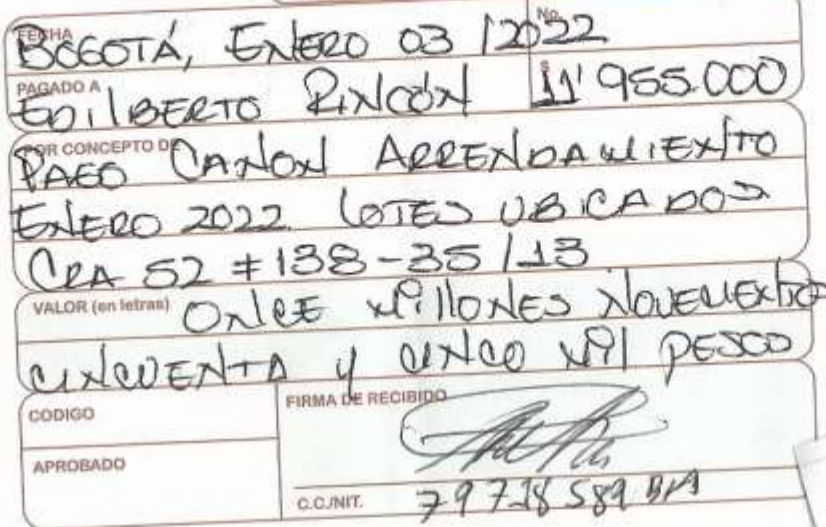 FECHA No.
BOGOTÁ, ENERO 03 / 2022
PAGADO A $
EDILBERTO RINCÓN 11'955.000
POR CONCEPTO DE
PAGO CANON ARRENDAMIENTO
ENERO 2022 LOTES UBICADOS
CRA 52 # 138-35 / 13
VALOR (en letras) ONCE MILLONES NOVECIENTOS
CINCUENTA Y CINCO MIL PESOS
CODIGO FIRMA DE RECIBIDO
APROBADO
C.C./NIT. 79 718 589 BTA